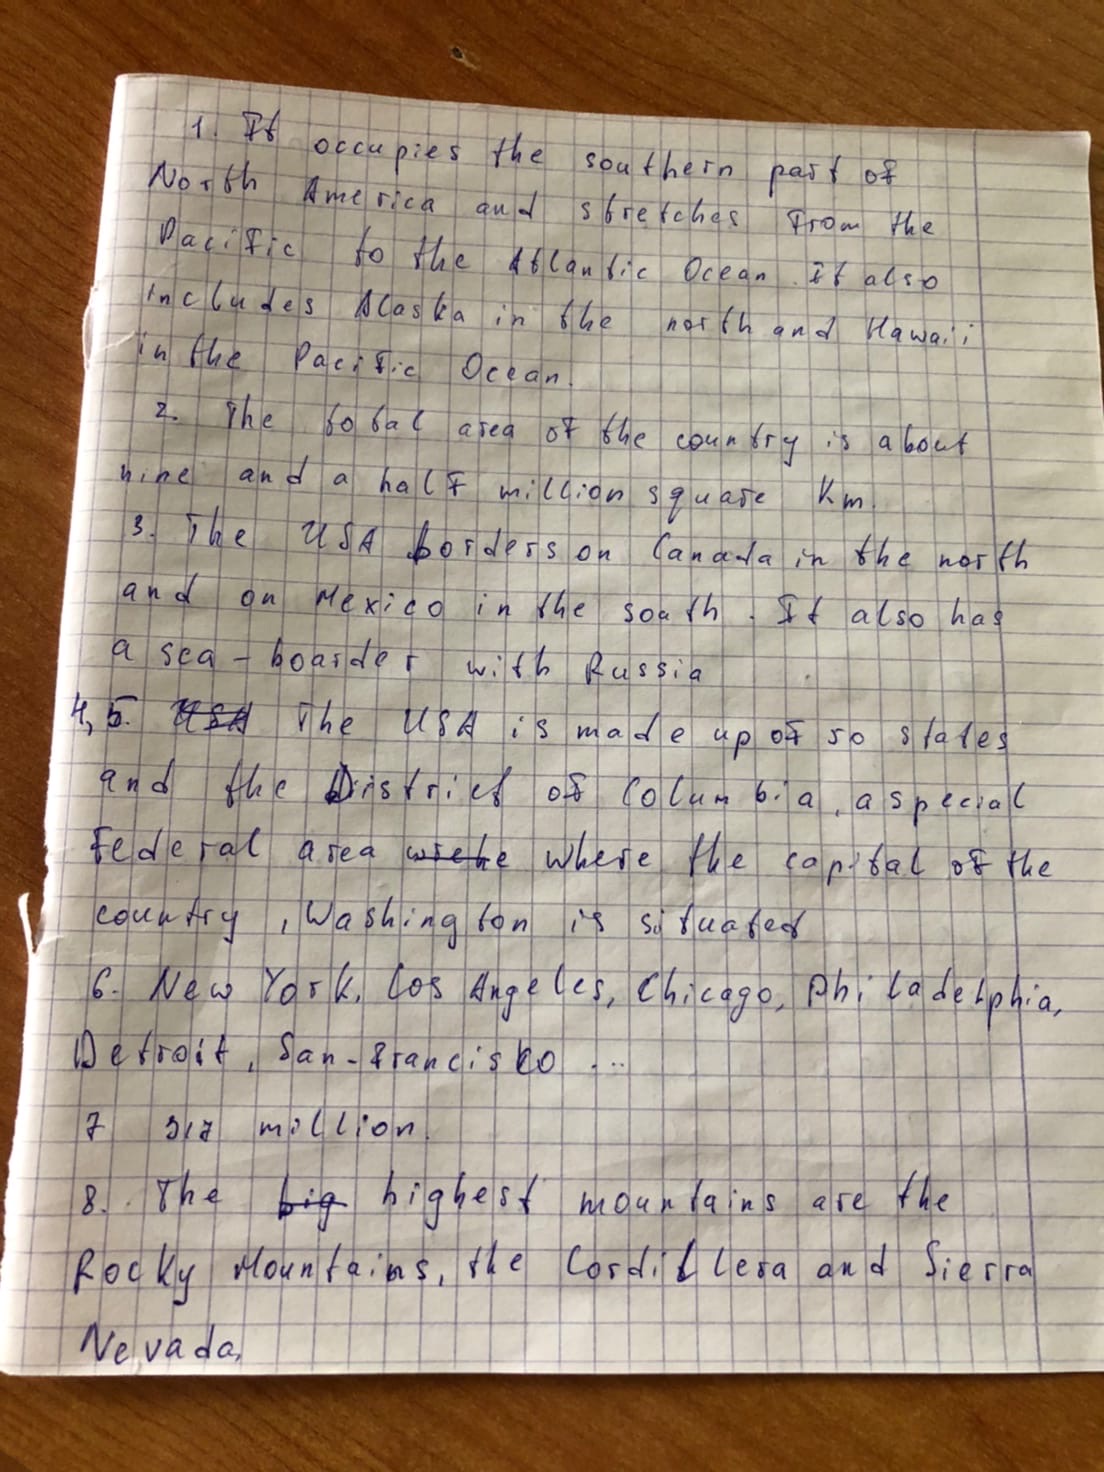 1. It occupies the southern part of
North America and stretches from the
Pacific to the Atlantic Ocean. It also
includes Alaska in the north and Hawaii
in the Pacific Ocean.
2. The total area of the country is about
nine and a half million square km.
3. The USA borders on Canada in the north
and on Mexico in the south. It also has
a sea-boarder with Russia
4,5. USA The USA is made up of 50 states
and the District of Columbia, a special
federal area where the capital of the
country, Washington is situated
6. New York, Los Angeles, Chicago, Philadelphia,
Detroit, San-Francisko ...
7 317 million.
8. The big highest mountains are the
Rocky Mountains, the Cordillera and Sierra
Nevada.